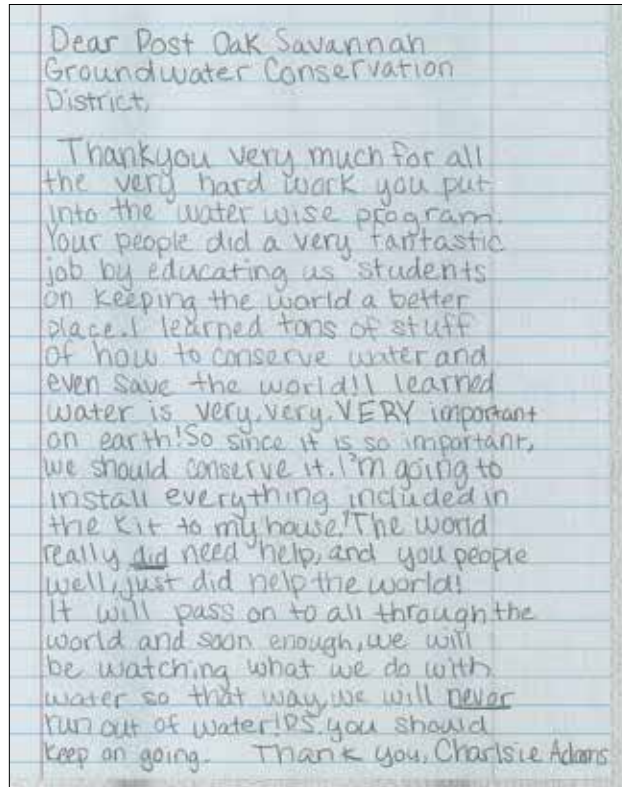 Dear Post Oak Savannah
Groundwater Conservation
District,
Thankyou very much for all
the very hard work you put
into the water wise program.
Your people did a very fantastic
job by educating us students
on keeping the world a better
place. I learned tons of stuff
of how to conserve water and
even save the world! I learned
water is very, very, VERY important
on earth! So since it is so important,
we should conserve it. I'm going to
install everything included in
the kit to my house! The world
really did need help, and you people
well, just did help the world!
It will pass on to all through the
world and soon enough, we will
be watching what we do with
water so that way, we will never
run out of water! P.S. you should
keep on going. Thank you, Charlsie Adams